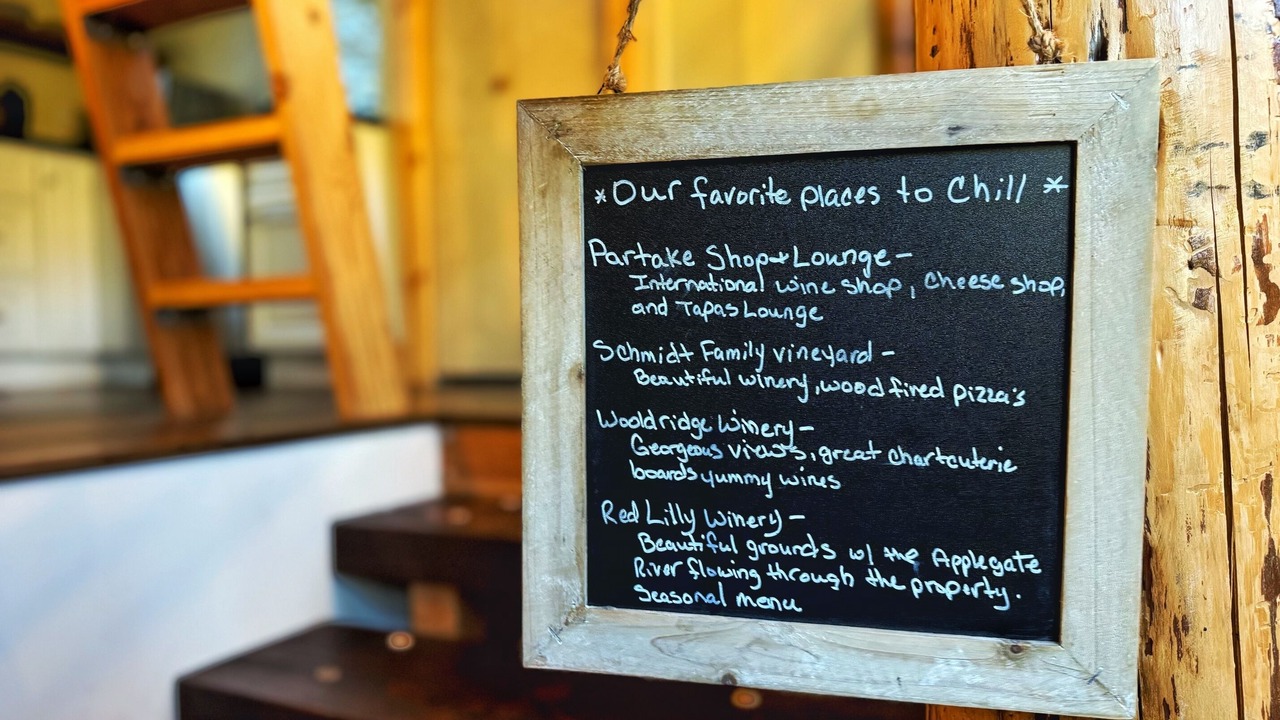 *Our favorite places to Chill *
Partake Shop+Lounge-
International wine shop, cheese shop,
and Tapas Lounge
Schmidt Family vineyard -
Beautiful winery, wood fired pizza's
Wooldridge Winery-
Georgeous views, great chartcuterie
boards yummy wines
Red Lilly Winery-
Beautiful grounds w/ the Applegate
River flowing through the property.
Seasonal menu